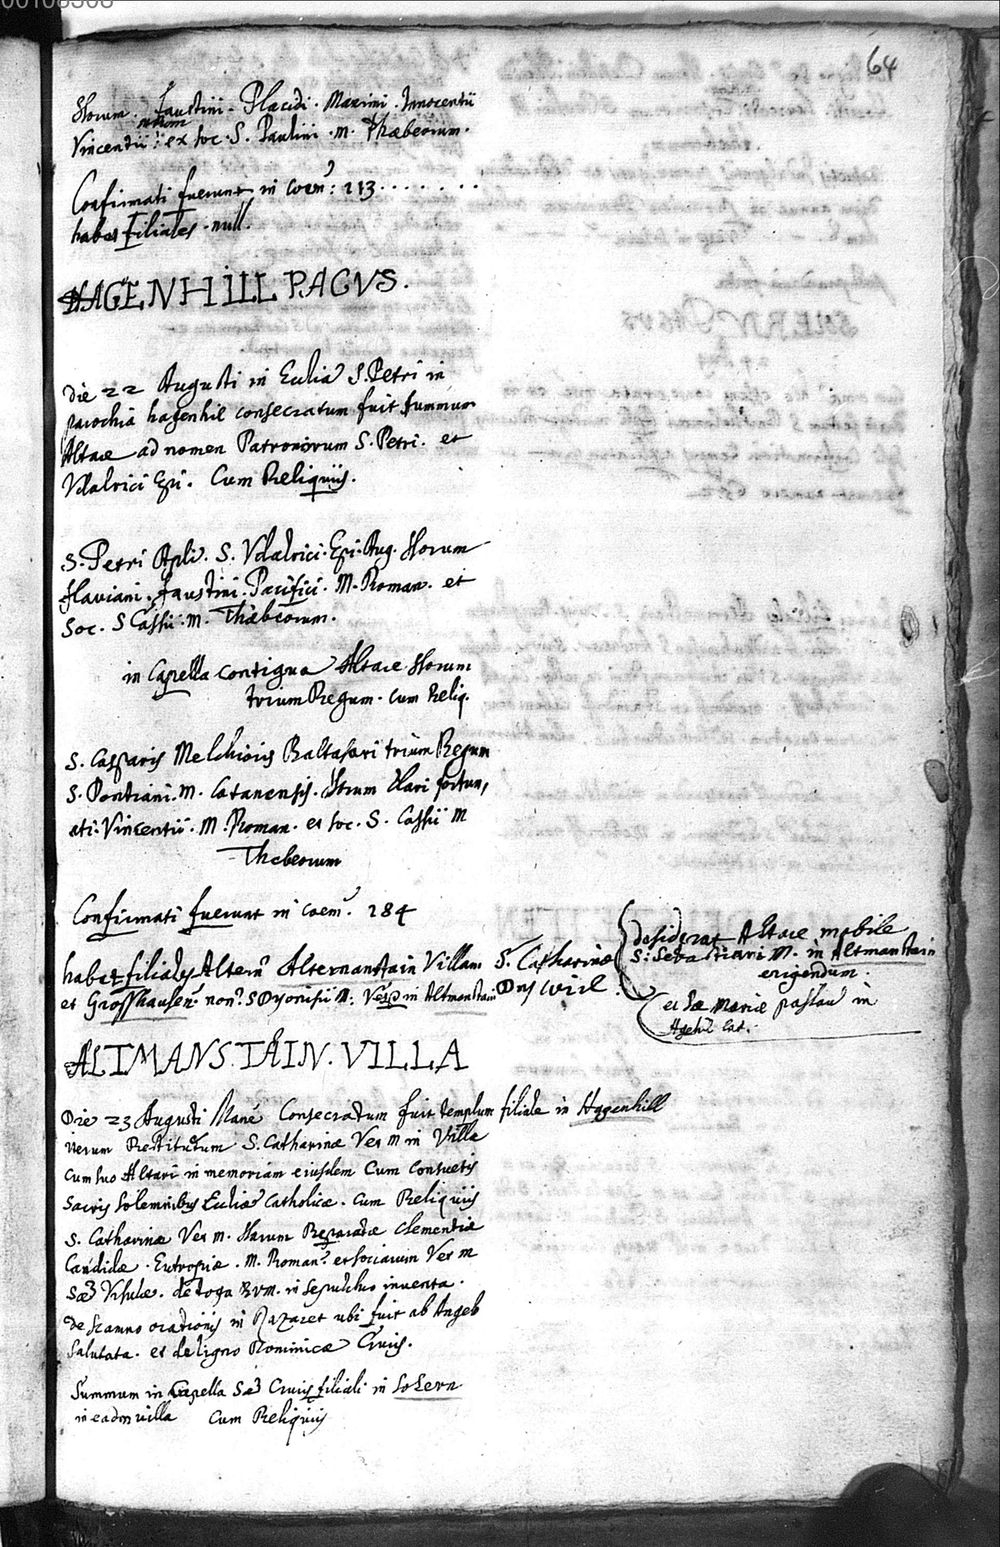 00108308
64
Horum. Faustini. Placidi. Maximi. Innocentii
Vincentii: ex soc. S. Paulini. M. Thæbeorum.
Confirmati fuerunt in coem: 213........
habet Filiales. null.
HAGENHILL PAGVS.
Die 22 Augusti in Eccliâ S. Petri in
parochiâ hagenhil consecratum fuit summum
Altare ad nomen Patronorum S. Petri. et
Vdalrici Epi. Cum Reliquiis.
S. Petri Apli. S. Vdalrici. Epi. Aug. Horum
flaviani. faustini. Pacifici. M. Roman. et
Soc. S Cassii. M. Thæbeorum.
in Capella contigua Altare Horum
trium Regum. cum Reliq.
S. Casparis Melchioris Baltasari trium Regum
S. Pontiani. M. Catanensis. Horum Clari fortun,
ati. Vincentii. M. Roman. et soc. S. Cassii M
Thebeorum
Confirmati fuerunt in coem. 284
habet filiales Altera Alternanstain Villam S. Catharinæ
et Grosshausen non. S Dyonisii M. Vesp in Altmanstain Dns
desiderat Altare mobile
S. Sebastiani M. in Altmanstain
erigendum.
et Sæ Mariæ passau in
ALTMANSTAIN. VILLA
Die 23 Augusti Mane Consecratum fuit templum filiale in Hagenhill
verum Restitutum S. Catharinæ Ver M in Villa
cum suo Altari in memoriam eiusdem Cum consuetis
sacris solemnibus Ecclia Catholicæ. cum Reliquiis
S. Catharinæ Ver M. Harum Reparatæ Clementiæ
Candidæ. Eutropiæ. M. Roman. et sociarum Ver M
Sæ Vrsulæ. de toga BVM. in sepulchro inventa.
de scamno orationis in Nazaret ubi fuit ab Angelo
salutata. et de ligno Dominicæ Crucis.
Summum in Capella Sæ Crucis filiali in Solern
in eadm villa Cum Reliquiis